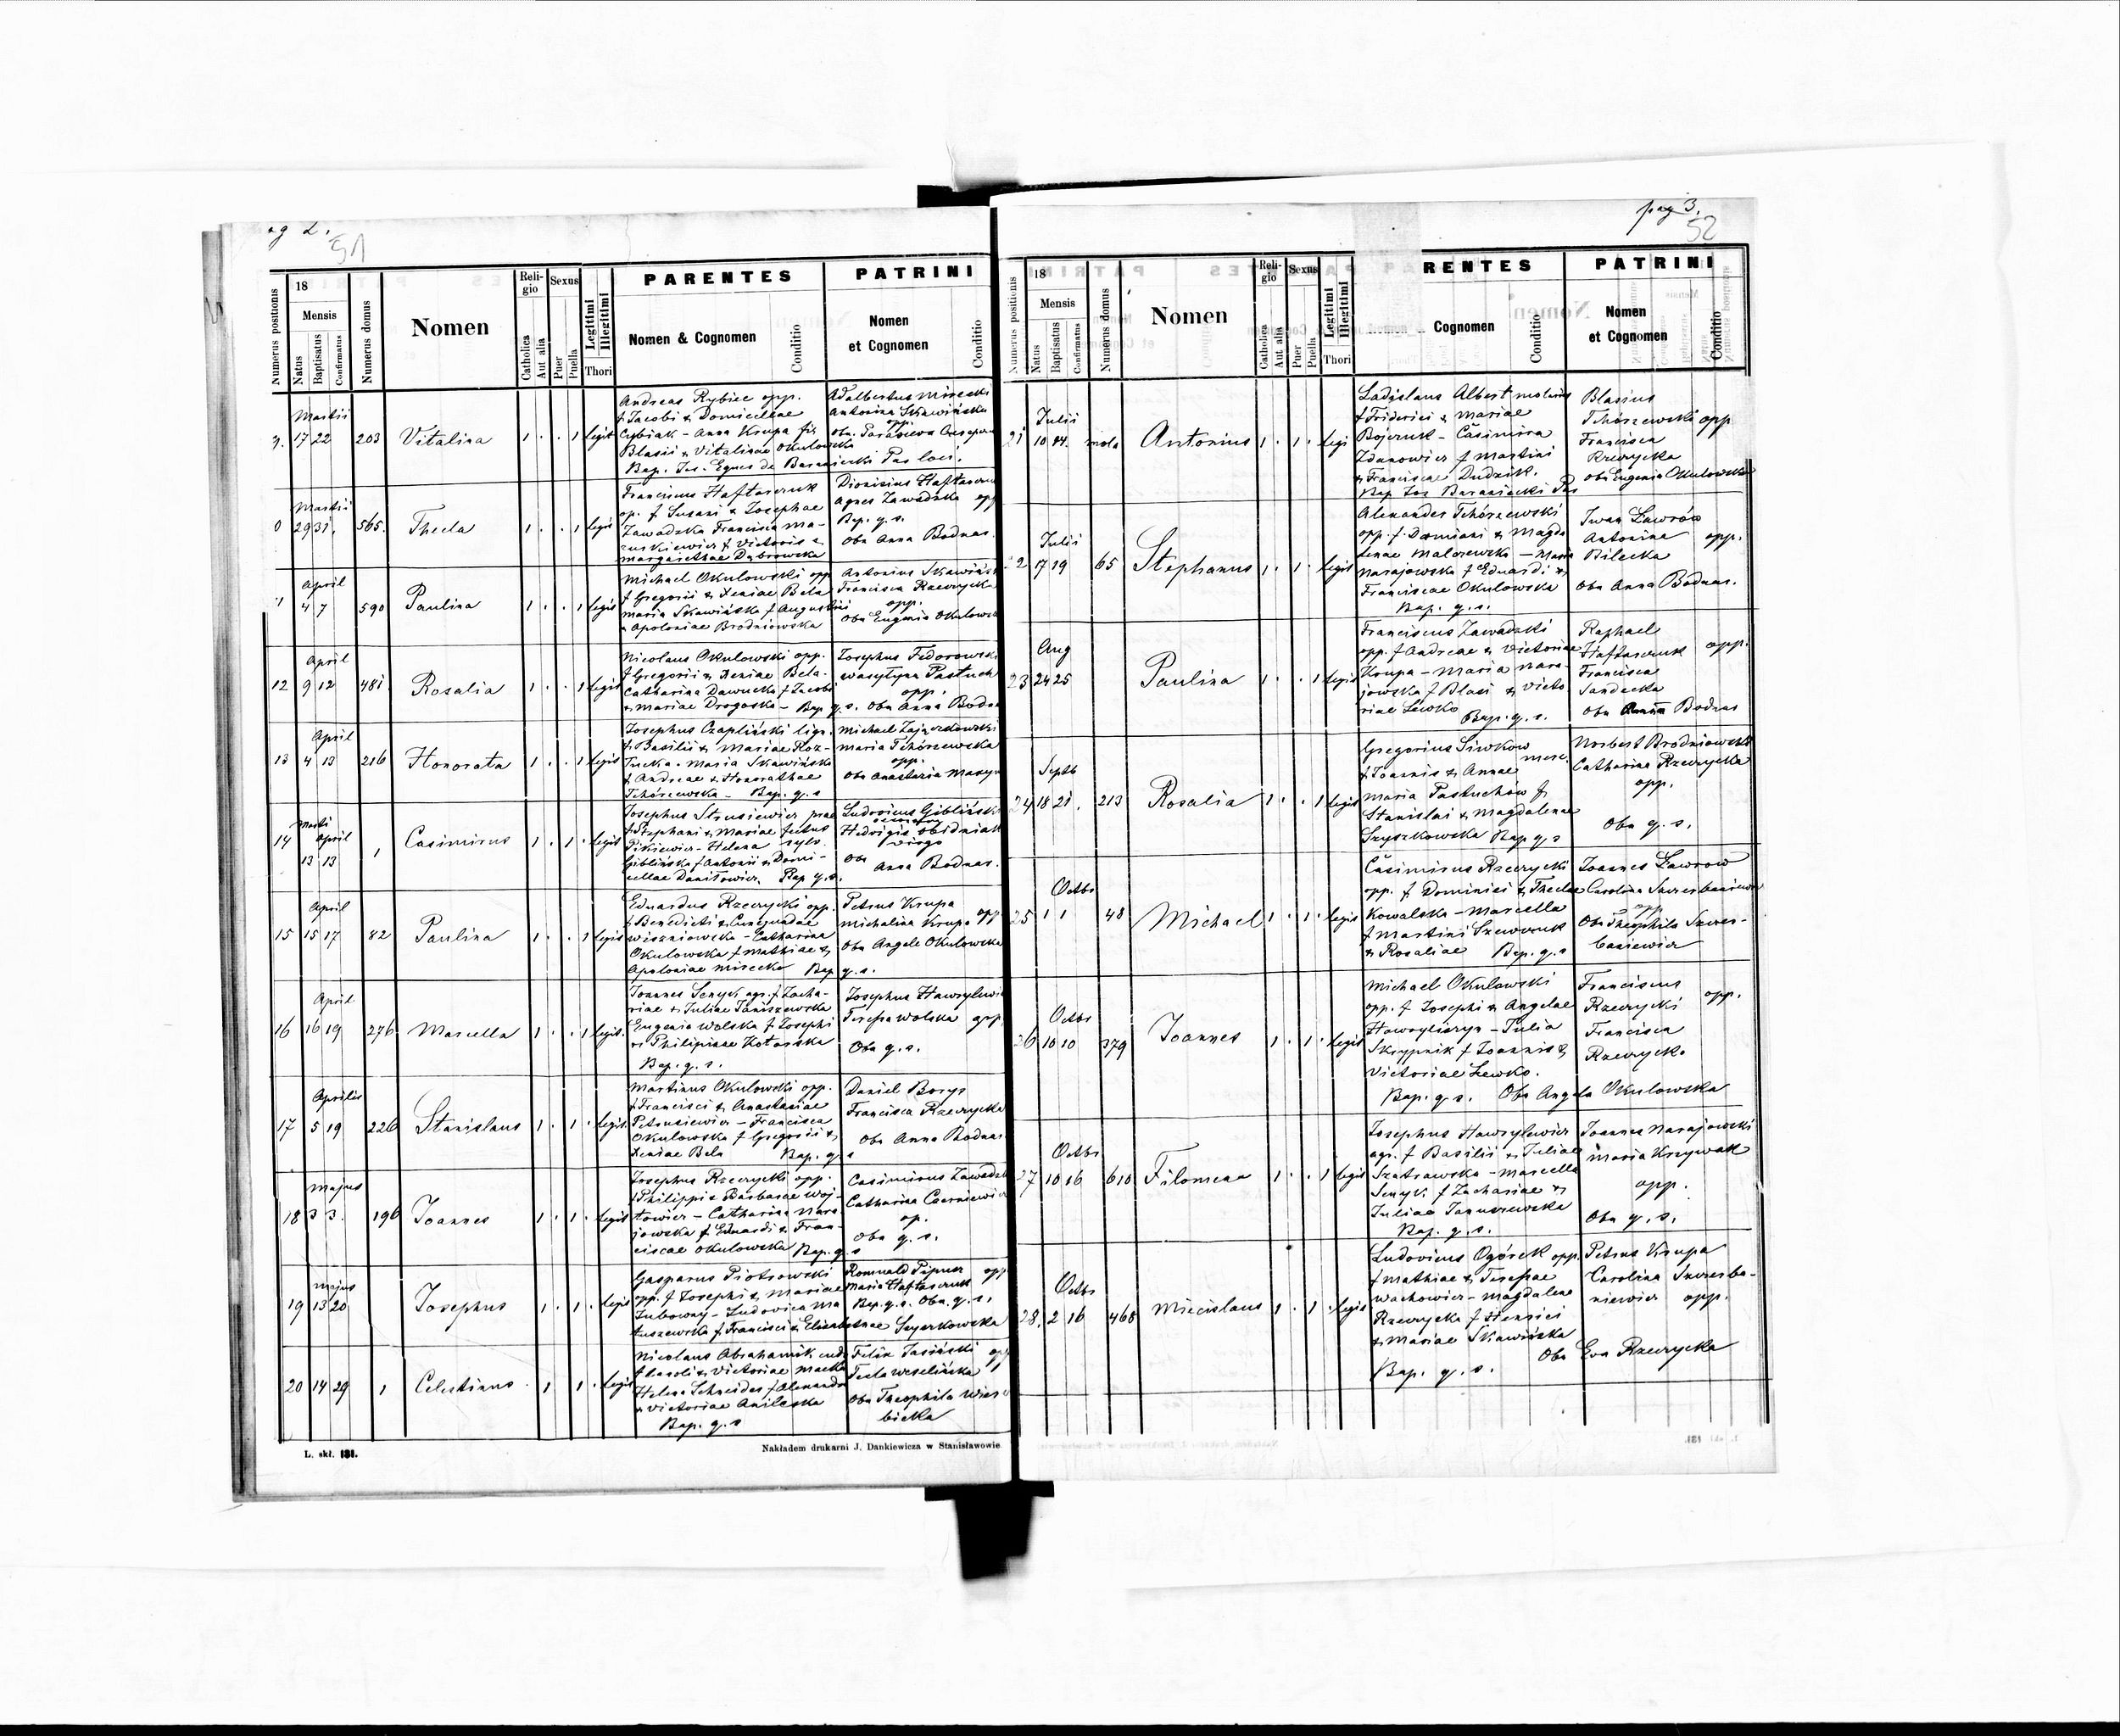 ag 2.
51
Numerus positionis
18
Mensis
Natus
Baptisatus
Confirmatus
Numerus domus
Nomen
Religio
Catholica
Aut alia
Sexus
Puer
Puella
Legitimi
Illegitimi
Thori
PARENTES
Nomen & Cognomen
Conditio
PATRINI
Nomen
et Cognomen
Conditio
Martii
17 22 203 Vitalina 1 . . 1 legit
Andreas Rybiec opp.
f Jacobi & Domicellae
Cybiak - Anna Krupa fia
Blasii & Vitalinae Okulowska
Bap. Jos. Eques de Baraniecki Par loci.
Adalbertus Mirecki
Antonina Skawińska
opp.
Martii
29 31. 565. Thecla 1 . . 1 legit
Franciscus Haftarczuk
op. f Susani & Josephae
Zawadzka Francisca Ma-
zurkiewicz f Victoris &
Margarethae Dąbrowska
Dionisius Haftarczuk
Agnes Zawadzka opp
Bap. q. s.
Obs Anna Bodnar.
April
4 7 590 Paulina 1 . . 1 legit
Michael Okulowski opp
f Gregorii & Xeniae Bela
Maria Skawińska f Augustini
& Apoloniae Brodniowska
Antonius Skawiński
Francisca Rzewycka
opp.
Obs Eugenia Okulowska
April
12 9 12 481 Rosalia 1 . . 1 legit
Nicolaus Okulowski opp.
f Gregorii & Xeniae Bela.
Catharina Dawucka f Jacobi
& Mariae Drogoska - Bap q. s. Obs Anna Bodn
Josephus Fedorowski
Wasylyna Pastuch
opp.
April
13 4 13 216 Honorata 1 . . 1 legit
Josephus Czapliński lign.
f Basilii & Mariae Roz-
Tucka. Maria Skawińska
f Andreae & Honorathae
Tchórzewska - Bap. q. s
Michael Zajączkowski
Maria Tchórzewska
opp.
Obs Anastasia
Marti
April
14 13 13 1 Casimirus 1 . 1 . legit
Josephus Strusiewicz
f Stephani & Mariae
Pikiewicz - Helena sylv.
Giblińska f Antonii & Domi-
cellae Daniłowicz. Bap q. s.
Ludovicus Gibliński
Hedvigis
virgo
Obs
Anna Bodnar.
April
15 15 17 82 Paulina 1 . . 1 legit
Eduardus Rzewycki opp.
f Benedicti & Cunegundae
Wiszniowska - Catharina
Okulowska f Mathiae &
Apoloniae Mirecka Bap q. s.
Petrus Krupa
Michalina Krupa opp
Obs Angela Okulowska
April
16 16 19 276 Marcella 1 . . 1 legit.
Joannes Senyk agr. f Zacha-
riae & Juliae Janiszewska
Eugenia Wolska f Josephi
& Philipinae Kotarska
Bap. q. s.
Josephus Hawrylewicz
Teresia Wolska opp
Obs q. s.
Aprilis
17 5 19 226 Stanislaus 1 . 1 . legit
Martinus Okulowski opp.
f Francisci & Anastasiae
Petrusiewicz - Francisca
Okulowska f Gregorii &
Xeniae Bela Bap. q. s
Daniel Borys
Francisca Rzewycka
Obs Anna Bodnar
Majus
18 3 3. 196 Joannes 1 . 1 . legit
Josephus Rzewycki opp.
f Philippi & Barbarae Woj-
towicz - Catharina Nara
jowska f Eduardi & Fran-
ciscae Okulowska Bap. q. s
Casimirus Zawadzki
Catharina Czerniewicz
op.
Obs q. s.
Majus
19 13 20 Josephus 1 . 1 . legit
Gasparus Piotrowski
opp. f Josephi & Mariae
Zubowny - Ludovica Ma
tuszewska f Francisci & Elisabethae Szyszkowska
Romuald Pipusz opp
Maria Haftarczuk
Bap. q. s. Obs. q. s.
20 14 29 1 Celestinus 1 . 1 . legit
Nicolaus Abrahamik
f Caroli & Victoriae
Helena Schneider f Alexandri
& Victoriae
Bap. q. s
Felix Jasiński opp
Tecla Weselińska
Obs Theophila Wierz
bicka
L. skł. 181.
Nakładem drukarni J. Dankiewicza w Stanisławowie
pag 3.
52
Numerus positionis
18
Mensis
Natus
Baptisatus
Confirmatus
Numerus domus
Nomen
Religio
Catholica
Aut alia
Sexus
Puer
Puella
Legitimi
Illegitimi
Thori
RENTES
Cognomen
Conditio
PATRINI
Nomen
et Cognomen
Conditio
Julii
21 10 14. mola Antonius 1 . 1 . legi
Ladislaus Albert
f Friderici & Mariae
Bojczuk - Casimira
Zdanowicz f Martini
& Franciscae Dudzik.
Bap Jos Baraniecki Par
Blasius
Tchórzewski opp
Francisca
Rzewycka
obs Eugenia Okulowska
Julii
2 17 19 65 Stephanus 1 . 1 . legit
Alexander Tchórzewski
opp. f. Damiani & Magda
lenae Malczewska - Maria
Narajowska f Eduardi &
Franciscae Okulowska
Bap. q. s.
Iwan Ławrów
Antonina opp.
Bilecka
Obs Anna Bodnar.
Aug
23 24 25 Paulina 1 . . 1 legit
Franciscus Zawadzki
opp. f Andreae & Victoriae
Krupa - Maria Nara-
jowska f Blasi & Victo
riae Lewko Bap. q. s.
Raphael
Haftarczuk opp.
Francisca
Sandecka
Obs Anna Bodnar
Septb
24 18 21. 213 Rosalia 1 . . 1 legit
Gregorius Siwkow
merc.
f Joannis & Annae
Maria Pastuchów f
Stanislai & Magdalenae
Szyszkowska Bap q. s
Norbert Brodniowski
Catharina Rzewycka
opp.
Obs q. s.
Octbr
25 1 1 48 Michael 1 . 1 . legit
Casimirus Rzewycki
opp. f Dominici & Theclae
Kowalska - Marcella
f Martini Szewczuk
& Rosaliae Bap. q. s
Joannes Ławrow
Carolina
opp
Obs Theophila Szczer-
baniewicz
Octbr
26 10 10 379 Joannes 1 . 1 . legit
Michael Okulowski
opp. f Josephi & Angelae
Hawryliszyn - Julia
Skrypnik f Joannis &
Victoriae Lewko.
Bap. q. s. Obs Angela Okulowska
Franciscus
Rzewycki opp.
Francisca
Rzewycka
Octbr
27 10 16 610 Filomena 1 . . 1 legit
Josephus Hawrylewicz
agr. f Basilii & Juliae
Szatrawska - Marcella
Senyk. f Zachariae &
Juliae Januszewska
Bap. q. s.
Joannes Narajowski
Maria Krzywak
opp.
Obs q. s.
Octbr
28. 2 16 468 Miecislaus 1 . 1 . legit
Ludovicus Ogórek opp.
f Mathiae & Teresiae
Wachowicz - Magdalena
Rzewycka f Henrici
& Mariae Skawińska
Bap. q. s. Obs Eva Rzewycka
Petrus Krupa
Carolina Szczerba-
niewicz opp.